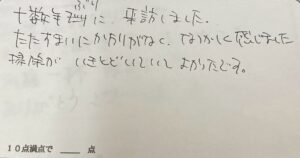 十数年ぶりに、来訪しました。
たたずまいにかわりがなく、なつかしく感じました
掃除が いきとどいていて よかったです。
10点満点で ____ 点